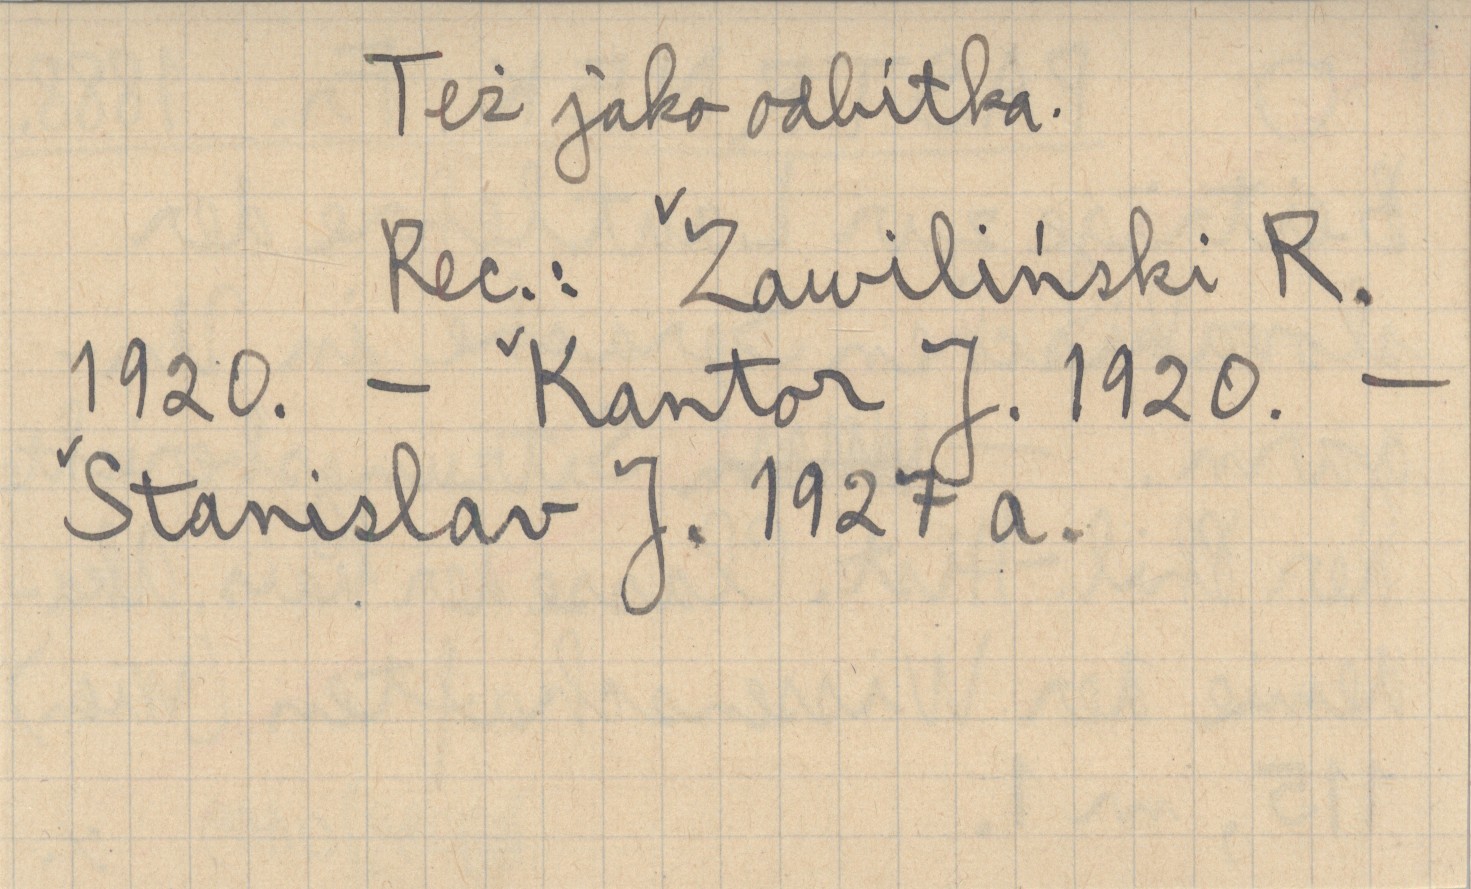 Też jako odbitka.
Rec.: ✓Zawiliński R.
1920. — ✓Kantor J. 1920. —
✓Stanislav J. 1927a.